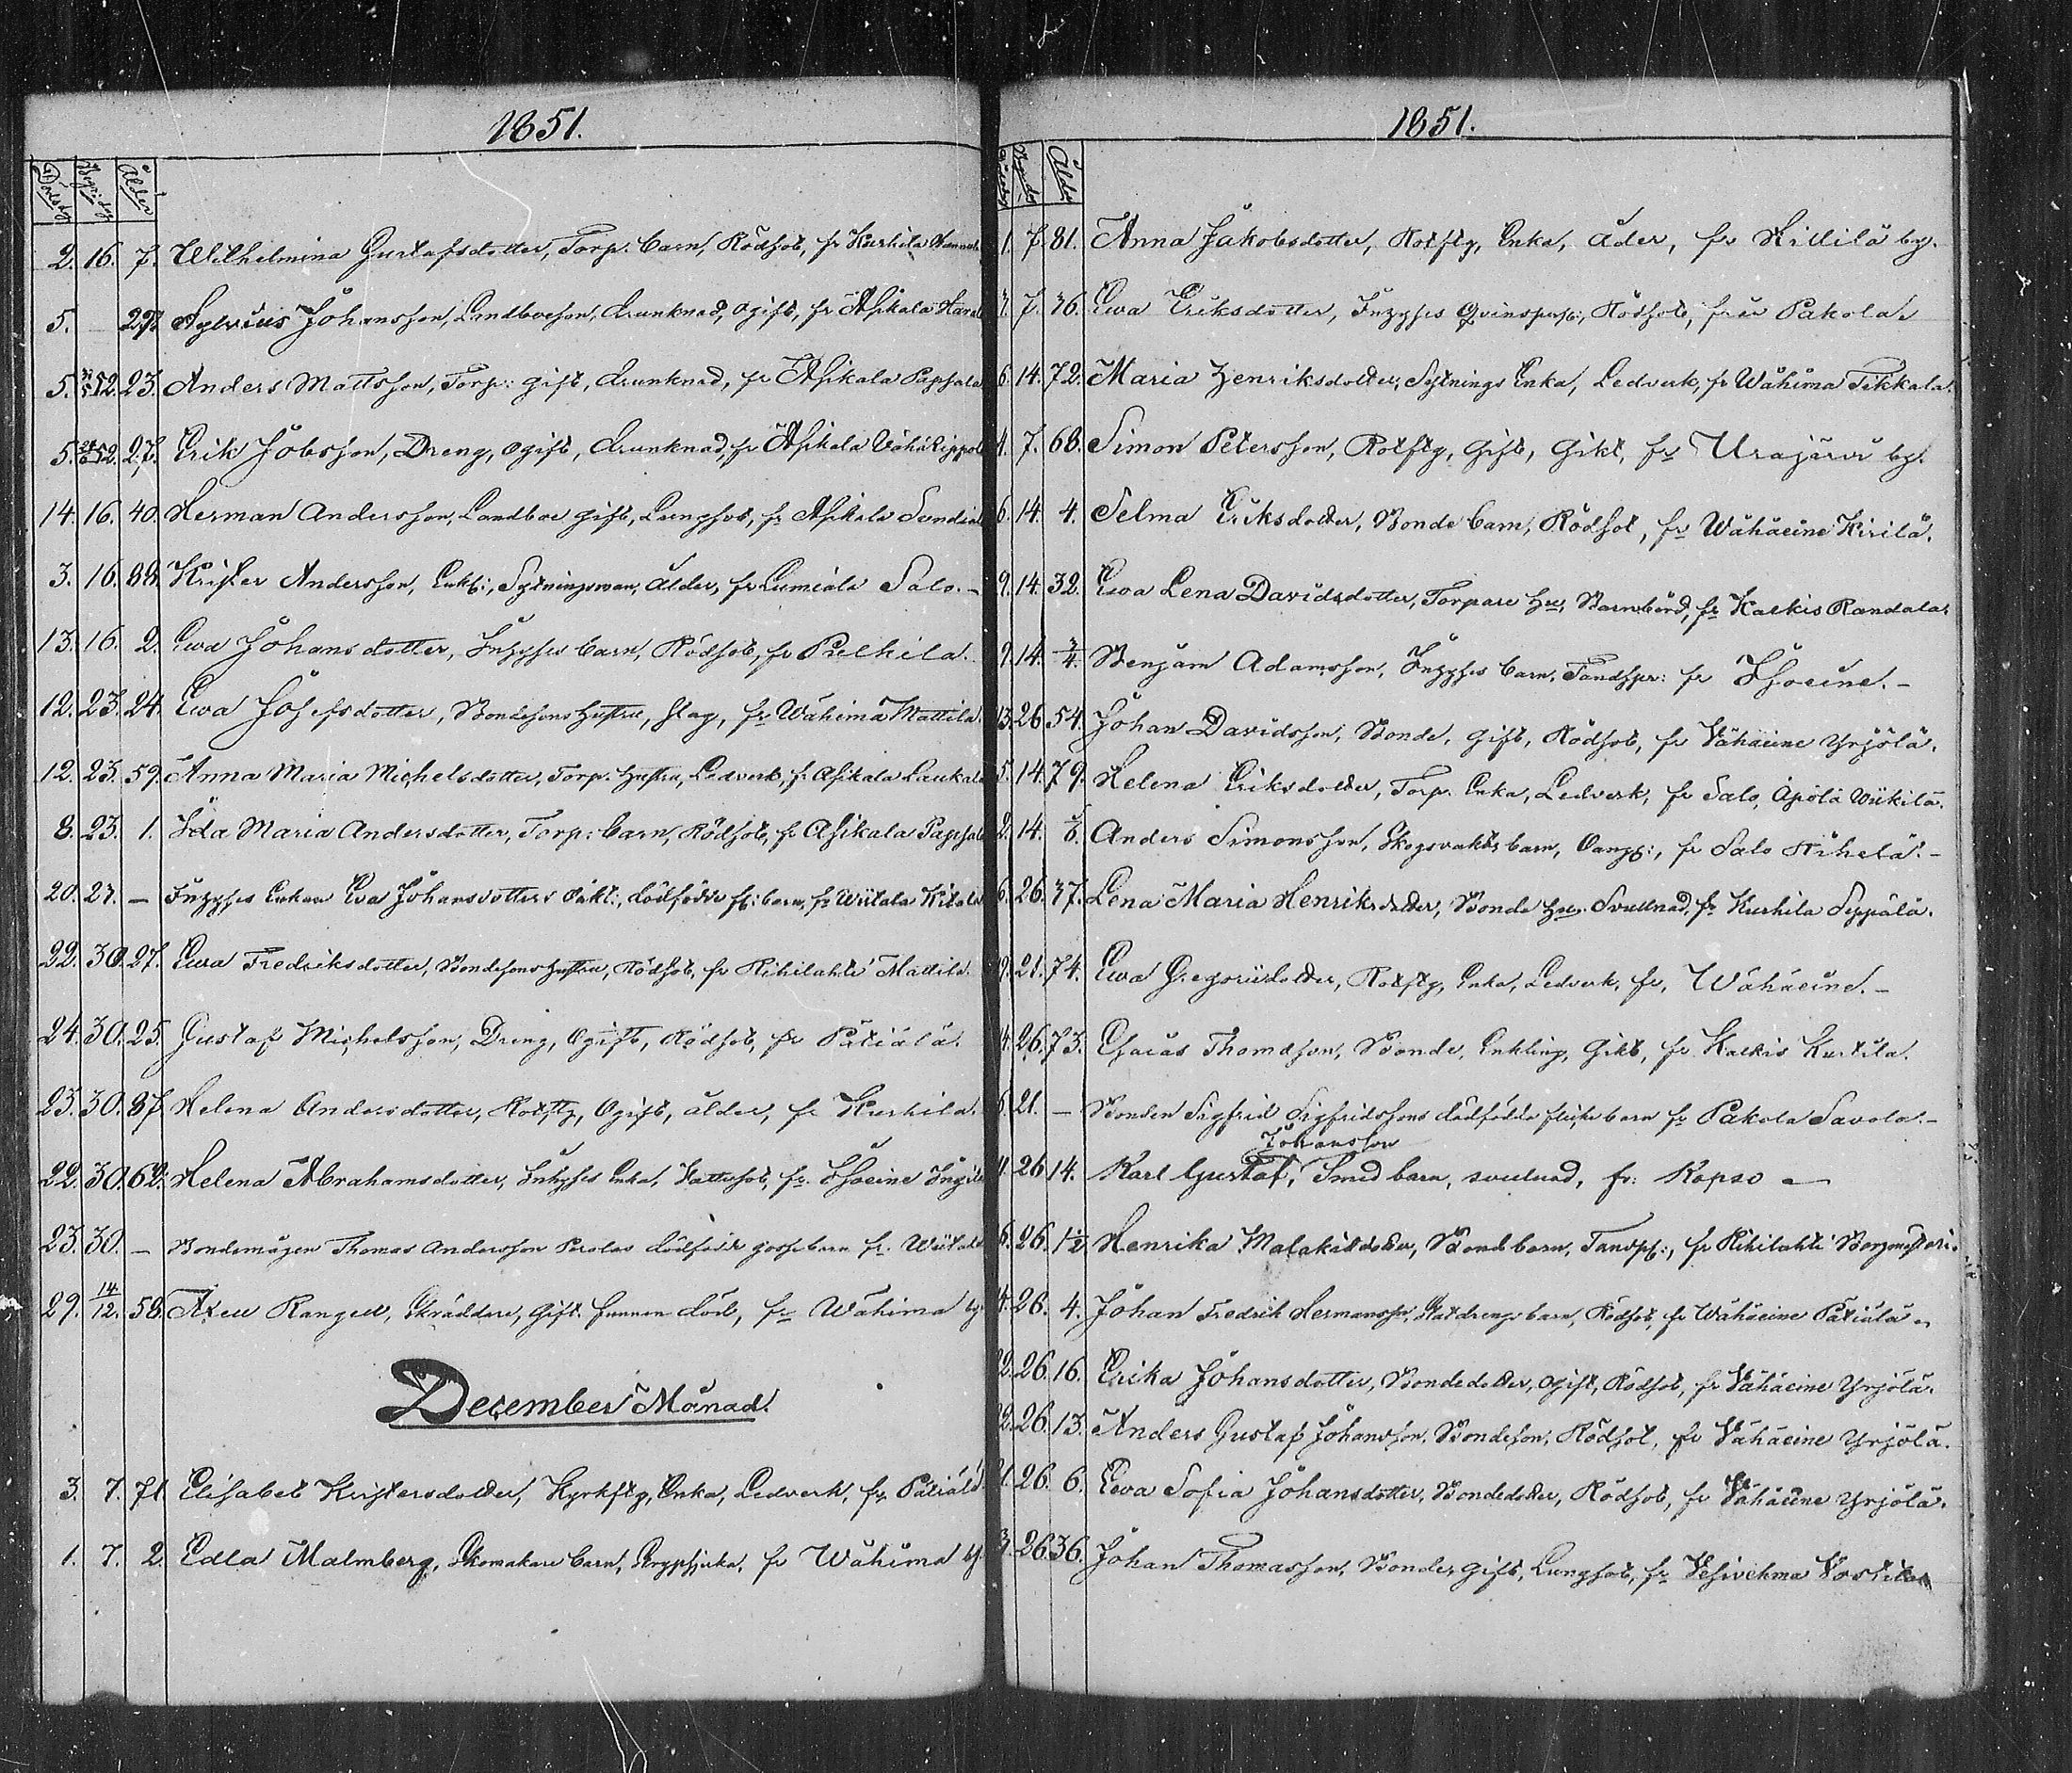 1851.
Dödsdag Begr:dag Ålder
2. 16. 7. Wilhelmina Gustafsdotter, Torp. barn, Rödsot, fr Kurhila
5. — 29. Sylvius Johansson, Landboeson, drunknad, ogift, fr Asikala
5. 52. 23. Anders Mattsson, Torp: gift, drunknad, fr Asikala Papsala
5. 52. 27. Erik Jobsson, Dreng, ogift, drunknad, fr Asikala Vähä Eippol
14. 16. 40. Herman Andersson, Landboe gift, Lungsot, fr Asikala
3. 16. 88. Krister Andersson, Enkl:, Sytningsman, ålder, fr Lumiala Salo. –
13. 16. 2. Ewa Johansdotter, Inhyses barn, Rödsot, fr Pulkila.
12. 23. 24. Ewa Josefsdotter, Bondesons hustru, slag, fr Wähimä Mattila.
12. 23. 59. Anna Maria Michelsdotter, Torp. hustru, Ledverk, fr Asikala Laukal
8. 23. 1. Ida Maria Andersdotter, Torp: barn, Rödsot, fr Asikala Papsal
20. 23. — Inhyses Enkan Eva Johansdotters oäkt:, dödfödde fl: barn, fr Wiitala
22. 30. 27. Ewa Fredriksdotter, Bondesons hustru, Rödsot, fr Rihilahti Mattila.
24. 30. 25. Gustaf Michelsson, Dreng, Ogift, Rödsot, fr Pätiälä.
23. 30. 87. Helena Andersdotter, Rotftg, Ogift, ålder, fr Kurhila.
22. 30. 62. Helena Abrahamsdotter, Inhyses Enka, Vattusot, fr Isoeine
23. 30. — Bondemågen Thomas Andersson Perolas dödfödde gossebarn fr. Wiital
29. 14/12. 58. Axell Rangell, Skräddare, gift. funnen död, fr Wähimä by
December Månad.
3. 7. 71. Elisabet Kristersdotter, Kyrkftg, Enka, Ledverk, fr Pätiälä.
1. 7. 2. Edla Malmberg, Skomakare barn, fr Wähimä by.
1851.
Ålder
1. 7. 81. Anna Jakobsdotter, Rotftg, Enka, ålder, fr Hillilä by.
7. 36. Ewa Eriksdotter, Inhyses Qvinspers:, Rödsot, från Pakola.
6. 14. 72. Maria Henriksdotter, Sytnings Enka, Ledverk, fr Wähimä Tikkala.
4. 7. 68. Simon Petersson, Rotftg, gift, Gikt, fr Urajärvi by.
6. 14. 4. Selma Eriksdotter, Bonde barn, Rödsot, fr Wähäeine Kirilä.
9. 14. 32. Ewa Lena Davidsdotter, Torpare Hu, Barnbörd, fr Kalkis Randala.
9. 14. 3/4. Benjam Adamsson, Inhyses barn, Tandspr: fr Isoeine. –
13. 26. 54. Johan Davidsson, Bonde, gift, Rödsot, fr Vähäeine Yrjölä.
5. 14. 79. Helena Eriksdotter, Torp. Enka, Ledverk, fr Salo, Äpölä Wükilä.
2. 14. Anders Simonsson, Skogsvakts barn, fr Salo –
6. 26. 37. Lena Maria Henriksdotter, Bonde Hu. Svullnad, fr Kurhila Seppälä.
19. 21. 74. Ewa Gregoriidotter, Rotftg, Enka, Ledverk, fr, Wähäeine. –
26. 73. Esaias Thomasson, Bonde, Enkling, Gikt, fr Kalkis Kuitila.
21. — Bonden Sigfrid Sigfridssons dödfödda flicke barn fr Pakola Savola. –
Johansson
26. 14. Karl Gustaf, Smed barn, svullnad, fr: Kopso –
26. 1½ Henrika Malakiidotter, Bonde barn, Tandsp:, fr Rihilahti Borgmästari.
26. 4. Johan Fredrik Hermansson, Statdrengs barn, Rödsot, fr Wähäeine Pätiälä.
26. 16. Erika Johansdotter, Bondedotter, ogift, Rödsot, fr Vähäeine Yrjölä.
26. 13. Anders Gustaf Johansson, Bondeson, Rödsot, fr Vähäeine Yrjölä.
26. 6. Ewa Sofia Johansdotter, Bondedotter, Rödsot, fr Vähäeine Yrjölä.
26. 36. Johan Thomasson, Bonde, gift, Lungsot, fr Vesivehma